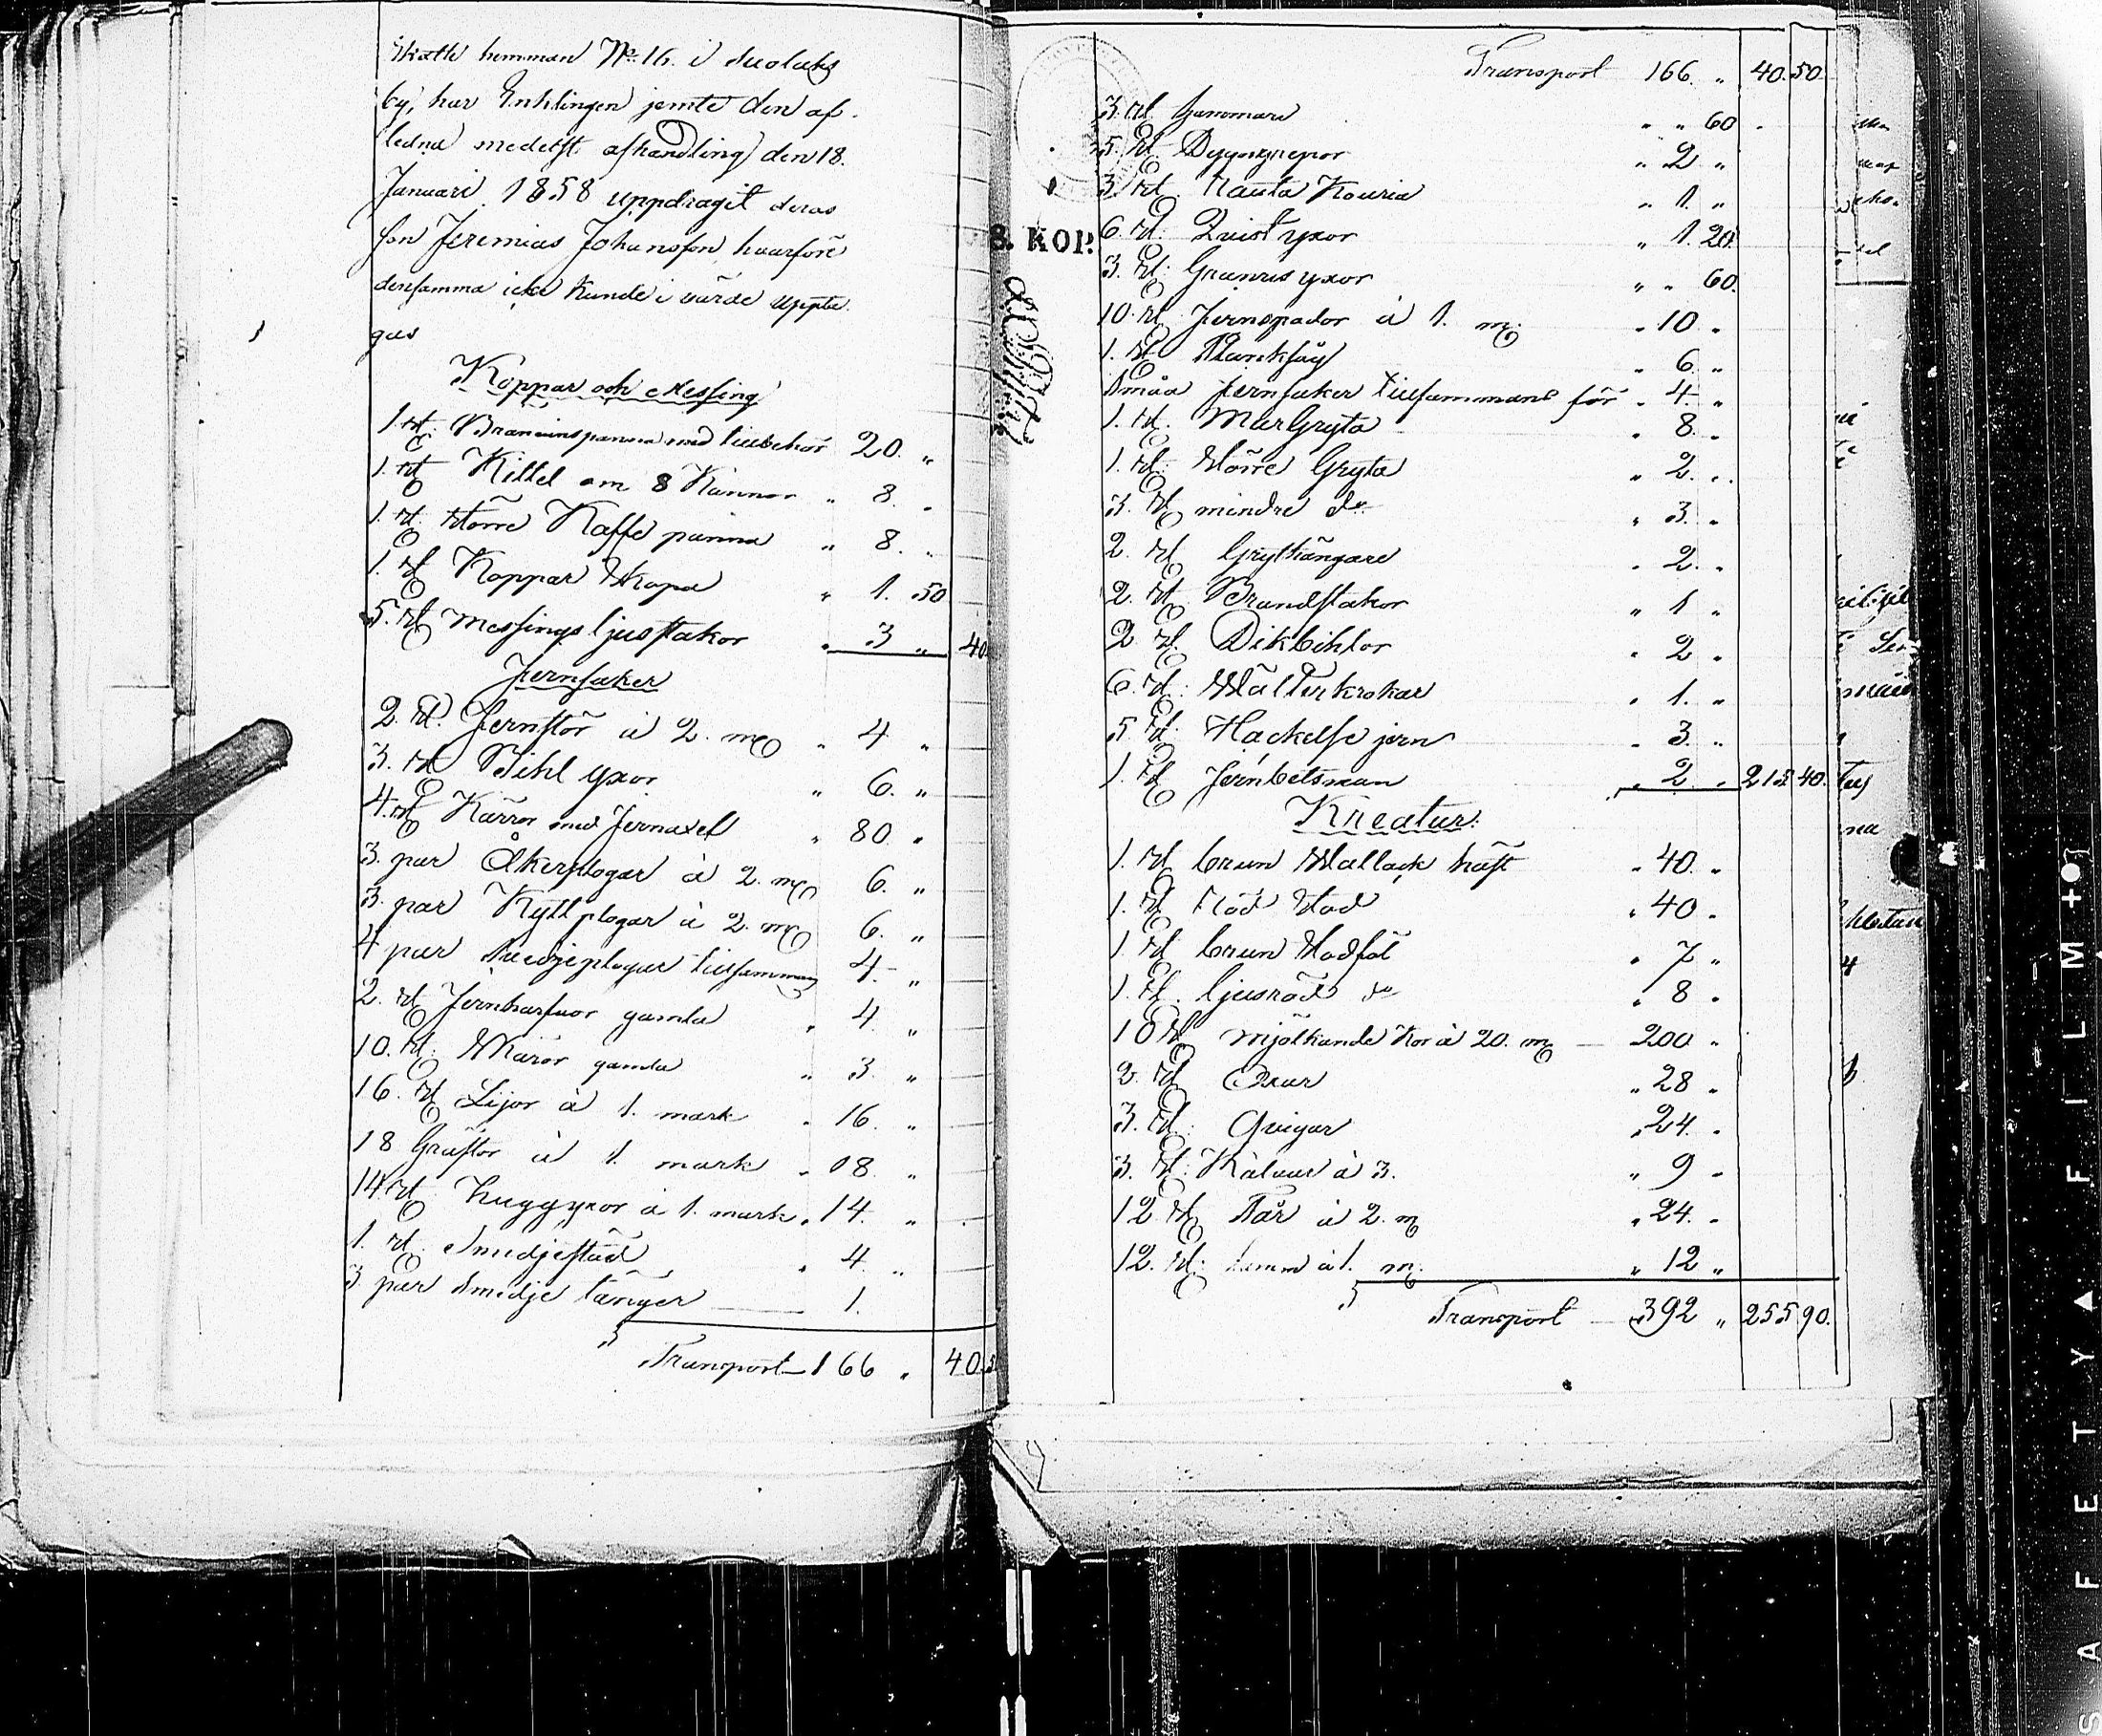 Skatte hemman No 16. i Suolaks
by, har Enklingen jemte den af-
ledna medelst afhandling den 18.
Januari 1858 uppdragit deras
son Jeremias Johansson, hvarföre
densamma icke kunde i värde uppta-
gas
Koppar och Messing
1. st. Bränvinspanna med tillbehör 20. "
1. st Kittel om 8 Kannor " 8. "
1. st. större Kaffe panna " 8. "
1. st Koppar Skopa " 1. 50
5. st Messings ljusstakar " 3 " 40
Jernsaker
2 st. Jernstör à 2. m " 4 "
3. st Bihl yxor " 6. "
4. st Kärror med Jernaxel " 80 "
3. par Åkerplogar à 2. m 6. "
3. par Kyttplogar à 2. m 6. "
4 par plogar tillsammans 4. "
2. st Jernharfvor gamla " 4 "
10. st. Skäror gamla " 3. "
16. st Lijor à 1. mark " 16. "
18 Gräftor à 1. mark " 18. "
14. st. Huggyxor à 1. mark " 14. "
1. st. Smidjestäd " 4. "
3 par Smidje tänger 1.
Transport 166 " 40. 5
Transport 166. " 40. 50.
3. st hammare " " 60
5. st " 2 "
3 st. Rauta Kouria " 1. "
6. st. Quist yxor " 1. 20.
3. st. Granris yxor " " 60.
10. st. Jernspador à 1. m. " 10 "
1. st Planksåg " 6. "
Småa Jernsaker tillsammans för " 4. "
1. st. MurGryta " 8. "
1. st. större Gryta " 2. "
3. st mindre do " 3. "
2. st Grythängare " 2. "
2. st Brandstakor " 1 "
2. st. Dikbihlor " 2 "
6. st. krokar " 1. "
5. st. Hackelse jern " 3. "
1. st Jernbetsman " 2. " 215 40.
Kreatur.
1. st brun Wallack häst " 40. "
1. st Röd Stod " 40 "
1. st brun Stodföl " 7 "
1. st. ljusröd do " 8 "
10 st mjölkande Kor à 20. m 200 "
2. st Oxar " 28 "
3. st. Qvigor " 24. "
3. st. Kalvar à 3. " 9 "
12 st. Får à 2. m " 24. "
12. st. lamm à 1. m. " 12 "
Transport 392 " 255 90.
8. KOP.
SAFETY ▲ FILM